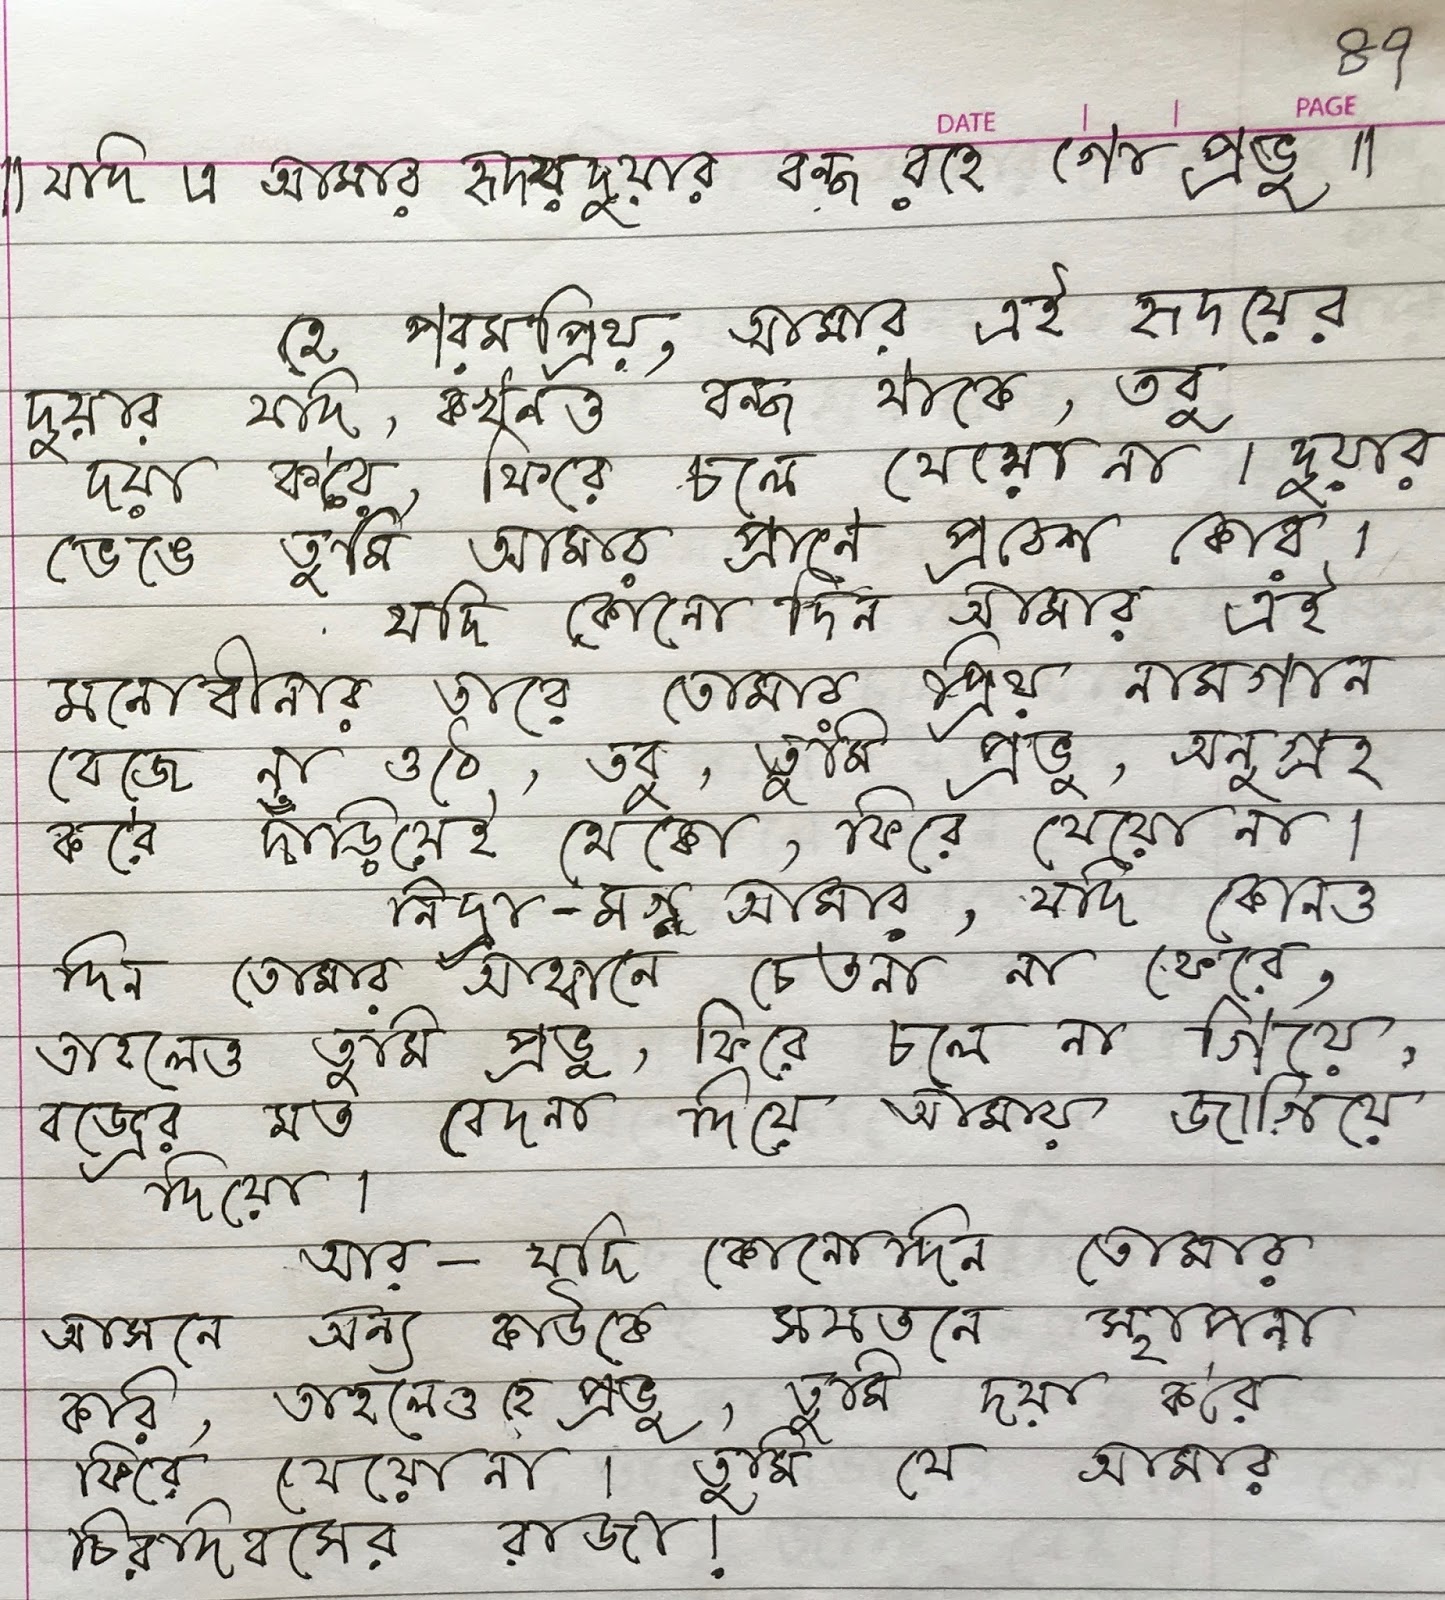 ৪৭
DATE PAGE
॥ যদি এ আমার হৃদয়দুয়ার বন্ধ রহে গো প্রভু ॥
হে পরমপ্রিয়, আমার এই হৃদয়ের
দুয়ার যদি, কখনও বন্ধ থাকে, তবু
দয়া করে, ফিরে চলে যেয়ো না। দুয়ার
ভেঙে তুমি আমার প্রানে প্রবেশ কোর।
যদি কোনো দিন আমার এই
মনোবীনার তারে তোমার প্রিয় নামগান
বেজে না ওঠে, তবু, তুমি প্রভু, অনুগ্রহ
করে দাঁড়িয়েই থেকো, ফিরে যেয়ো না।
নিদ্রা-মগ্ন আমার, যদি কোনও
দিন তোমার আহ্বানে চেতনা না ফেরে,
তাহলেও তুমি প্রভু, ফিরে চলে না গিয়ে,
বজ্রের মত বেদনা দিয়ে আমায় জাগিয়ে
দিয়ো।
আর - যদি কোনোদিন তোমার
আসনে অন্য কাউকে সযতনে স্থাপনা
করি, তাহলেও হে প্রভু, তুমি দয়া ক'রে
ফিরে যেয়ো না। তুমি যে আমার
চিরদিবসের রাজা!